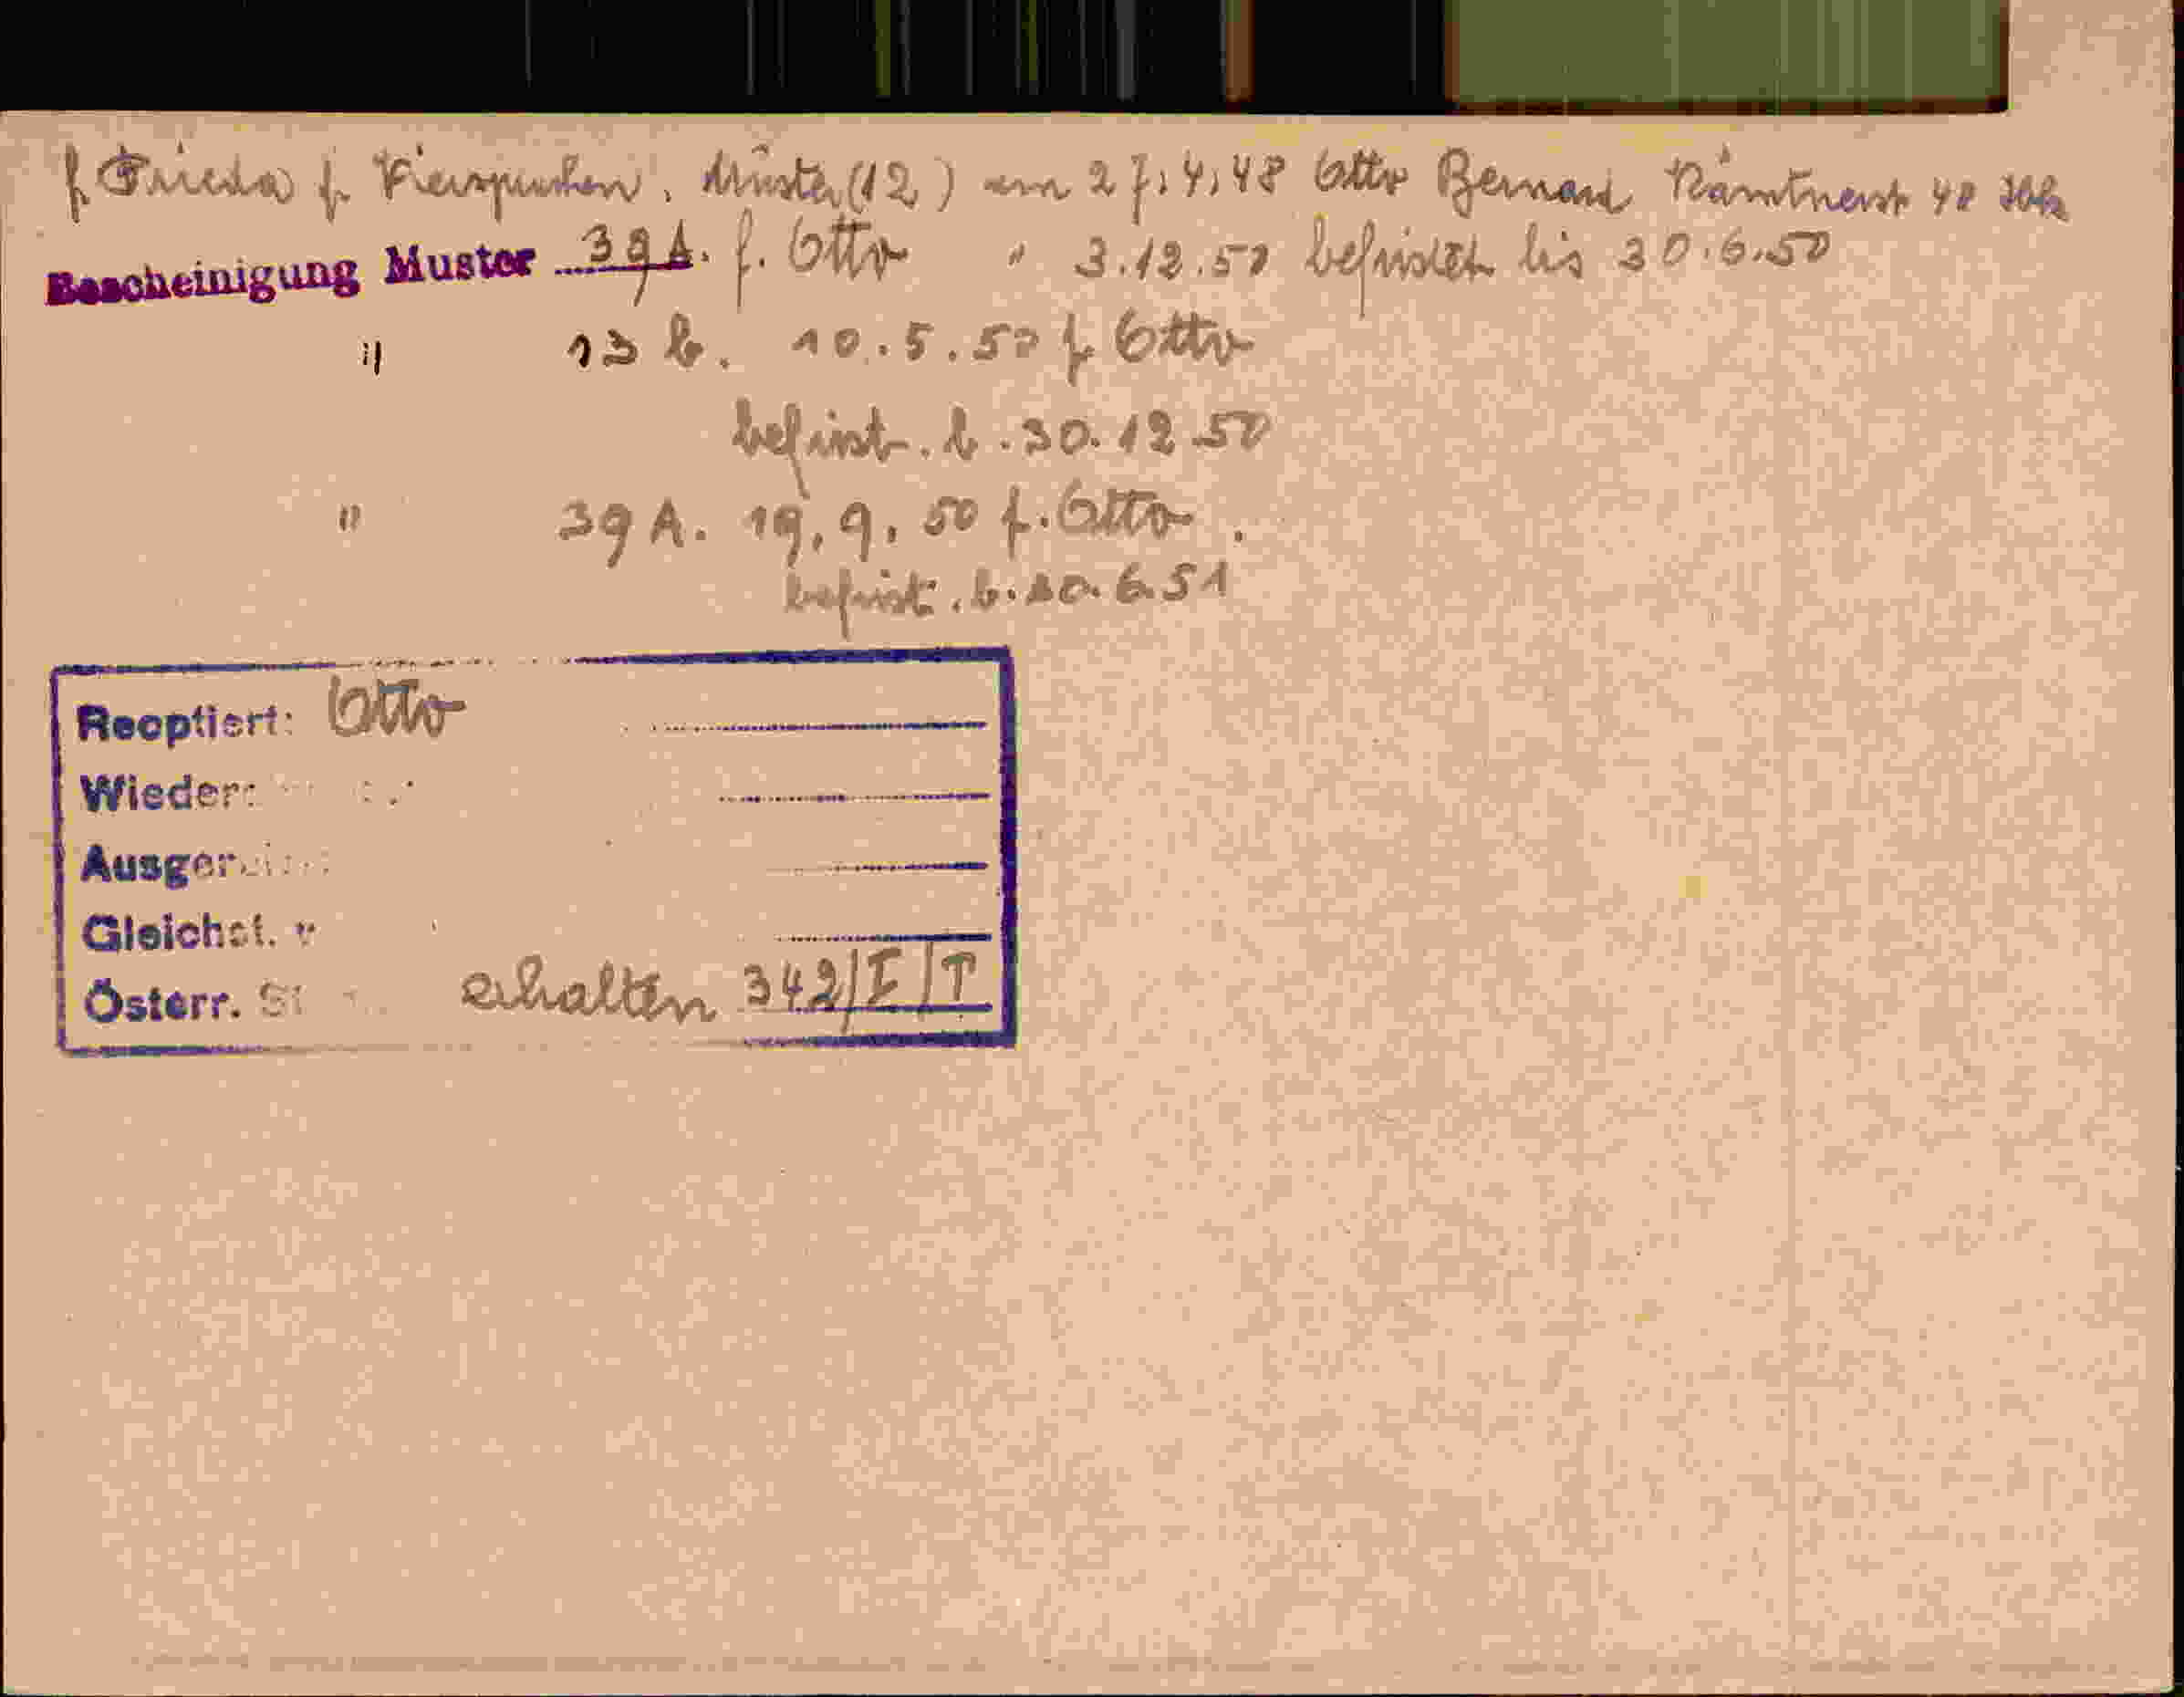 f. Frieda f. Muster (12) am 27.4.48 Otto Bernard Kärntnerst 48 Ibk
Bescheinigung Muster 39A. f. Otto " 3.12.50 befristet bis 30.6.50
" 13 b. 10.5.50 f. Otto
befrist. b. 30.12.50
" 39 A. 19.9.50 f. Otto.
befrist. b. 30.6.51
Reoptiert: Otto
Wieder
Ausger
Gleichst.
Österr. St erhalten 342/I/T